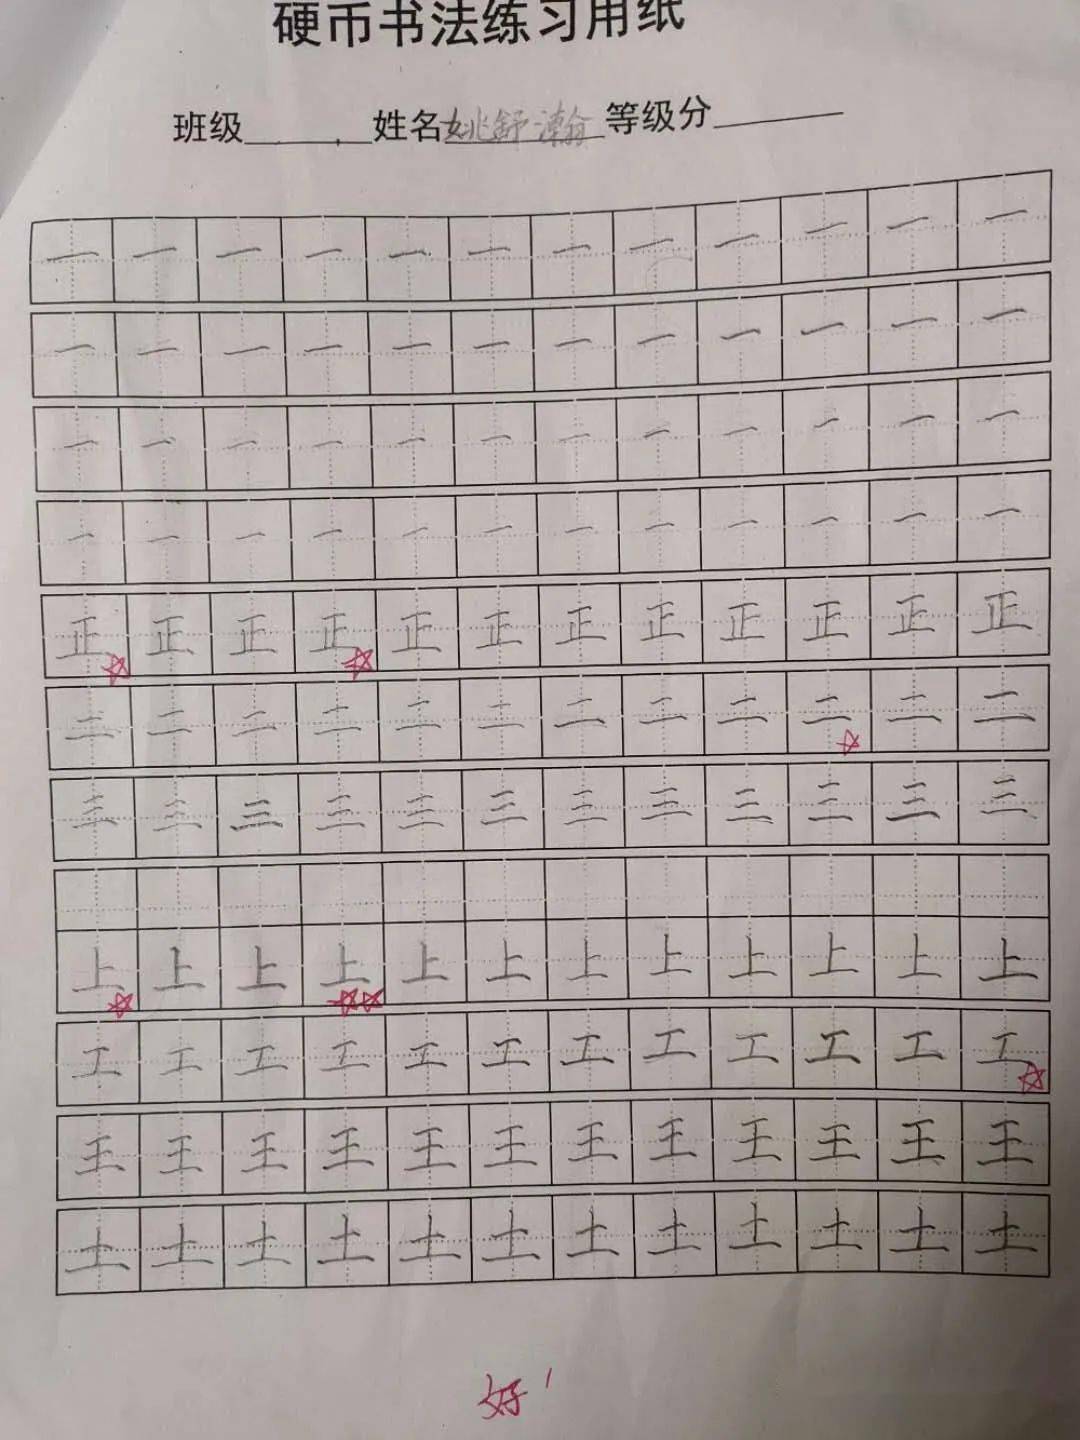 硬币书法练习用纸
班级 姓名姚舒瀚 等级分
一一一一一一一一一一一一
一一一一一一一一一一一一
一一一一一一一一一一一一
一一一一一一一一一一一一
正正正正正正正正正正正正
二二二二二二二二二二二二
三三三三三三三三三三三三
上上上上上上上上上上上上
工工工工工工工工工工工工
王王王王王王王王王王王王
土土土土土土土土土土土土
好!